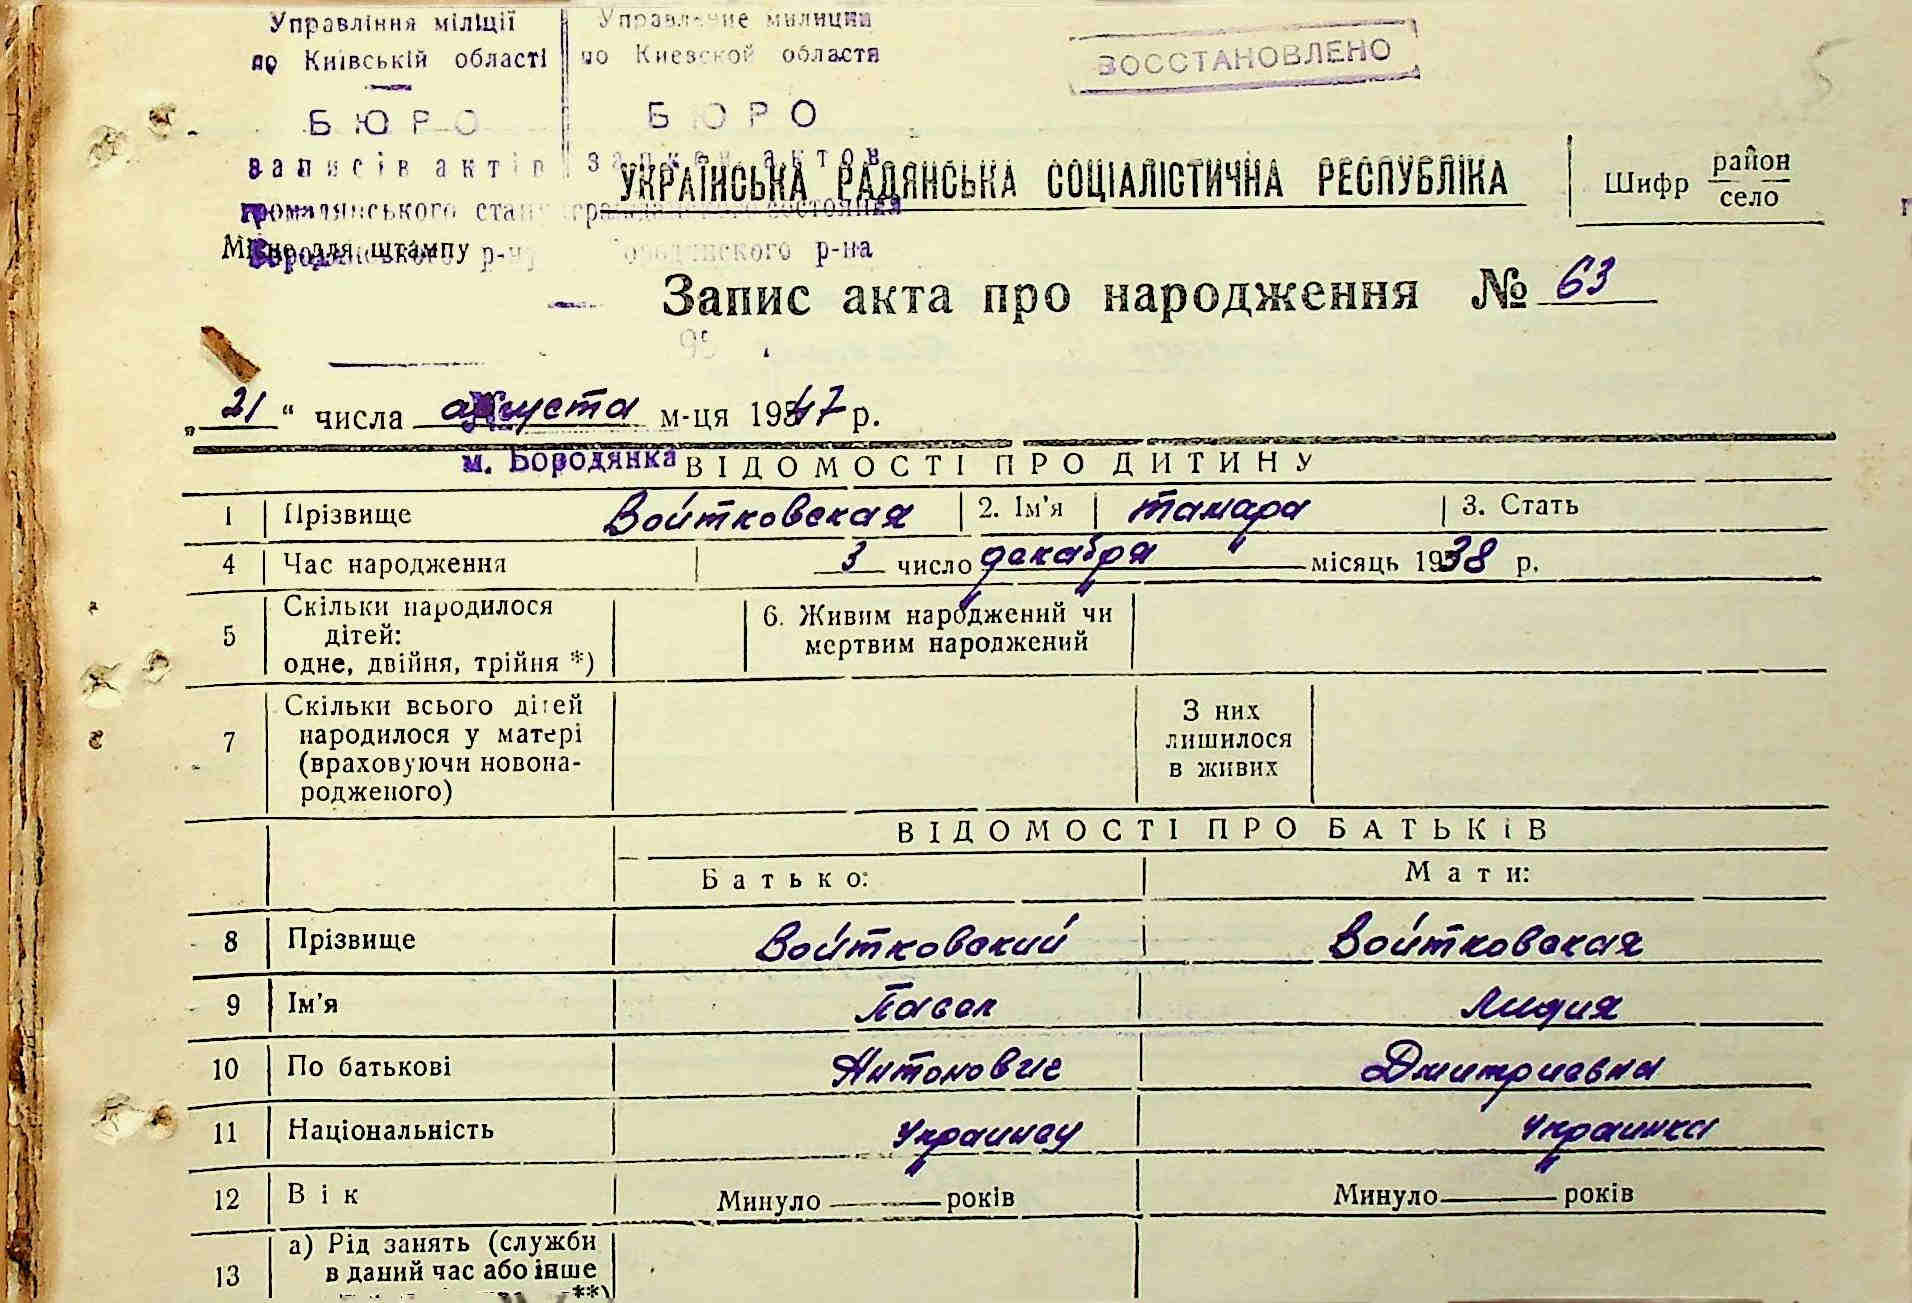 Управління міліції
по Київській області
БЮРО
записів актів
громадянського стану
Бородянського р-ну
Управление милиции
по Киевской области
БЮРО
записей актов
гражданского состояния
Бородянского р-на
ВОССТАНОВЛЕНО
УКРАЇНСЬКА РАДЯНСЬКА СОЦІАЛІСТИЧНА РЕСПУБЛІКА
Шифр район
село
Місце для штампу
Запис акта про народження № 63
„21“ числа августа м-ця 1947 р.
м. Бородянка
ВІДОМОСТІ ПРО ДИТИНУ
1 Прізвище Войтковская 2. Ім'я Тамара 3. Стать
4 Час народження 3 число декабря місяць 1938 р.
5 Скільки народилося
дітей:
одне, двійня, трійня *)
6. Живим народжений чи
мертвим народжений
7 Скільки всього дітей
народилося у матері
(враховуючи новона-
родженого)
З них
лишилося
в живих
ВІДОМОСТІ ПРО БАТЬКІВ
Батько: Мати:
8 Прізвище Войтковский Войтковская
9 Ім'я Павел Лидия
10 По батькові Антонович Дмитриевна
11 Національність Украинец Украинка
12 Вік Минуло років Минуло років
13 а) Рід занять (служби
в даний час або інше